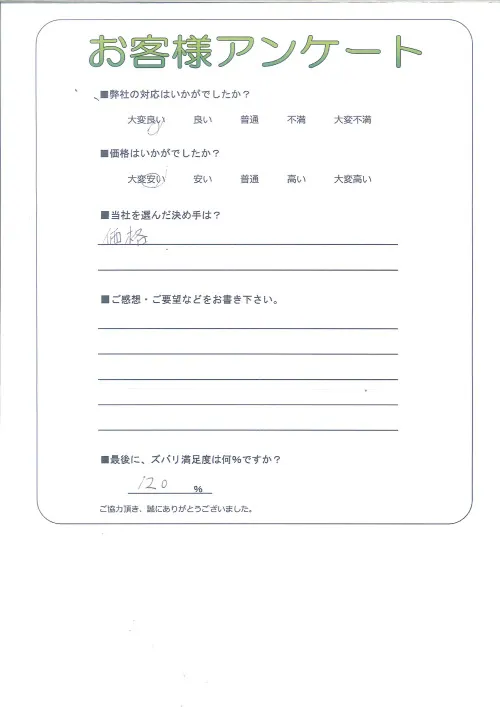 お客様アンケート
■弊社の対応はいかがでしたか？
大変良い 良い 普通 不満 大変不満
■価格はいかがでしたか？
大変安い 安い 普通 高い 大変高い
■当社を選んだ決め手は？
価格
■ご感想・ご要望などをお書き下さい。
■最後に、ズバリ満足度は何%ですか？
120 %
ご協力頂き、誠にありがとうございました。